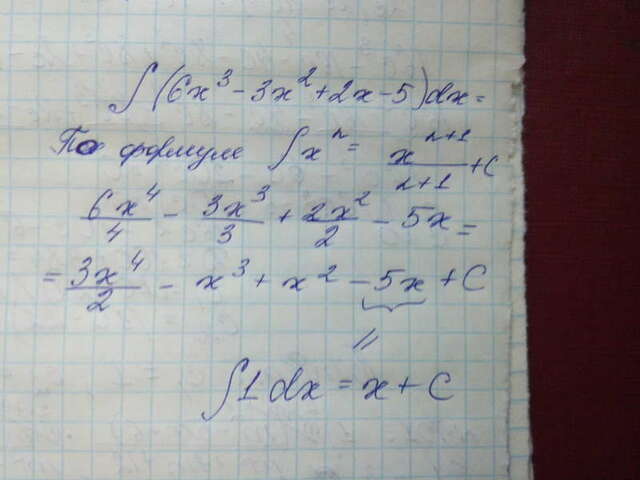 ∫(6x³ - 3x² + 2x - 5)dx =
По формуле ∫xⁿ = xⁿ⁺¹/n+1 + C
6x⁴/4 - 3x³/3 + 2x²/2 - 5x =
= 3x⁴/2 - x³ + x² - 5x + C
//
∫1 dx = x + C